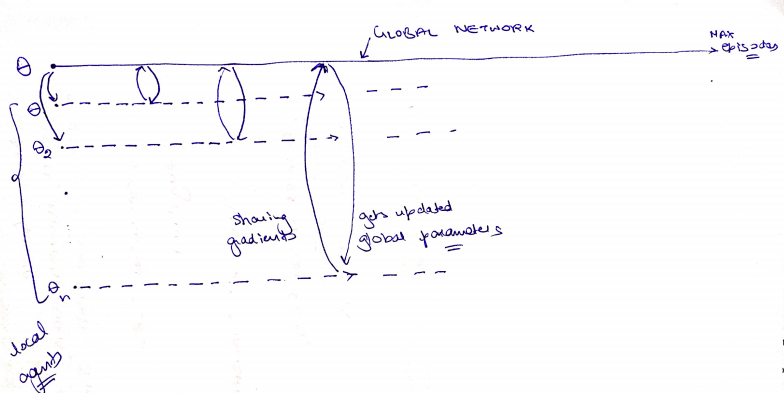 GLOBAL NETWORK
MAX
episodes
θ
θ
θ2
sharing
gradients
gets updated
global parameters
θn
local
agents